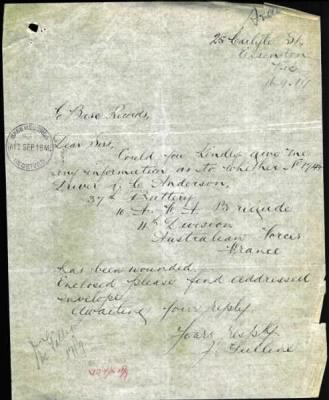 25 Carlyle St
Essendon
Vic
To Base Records,
Dear Sirs,
Could you kindly give me
any information as to whether
Driver J. C. Anderson,
37th Battery
10 A. F. A Brigade
4th Division
Australian Forces
France
has been wounded
Enclosed please find addressed
envelope
Awaiting your reply
Yours respty
BASE RECORDS
SEP
RECEIVED